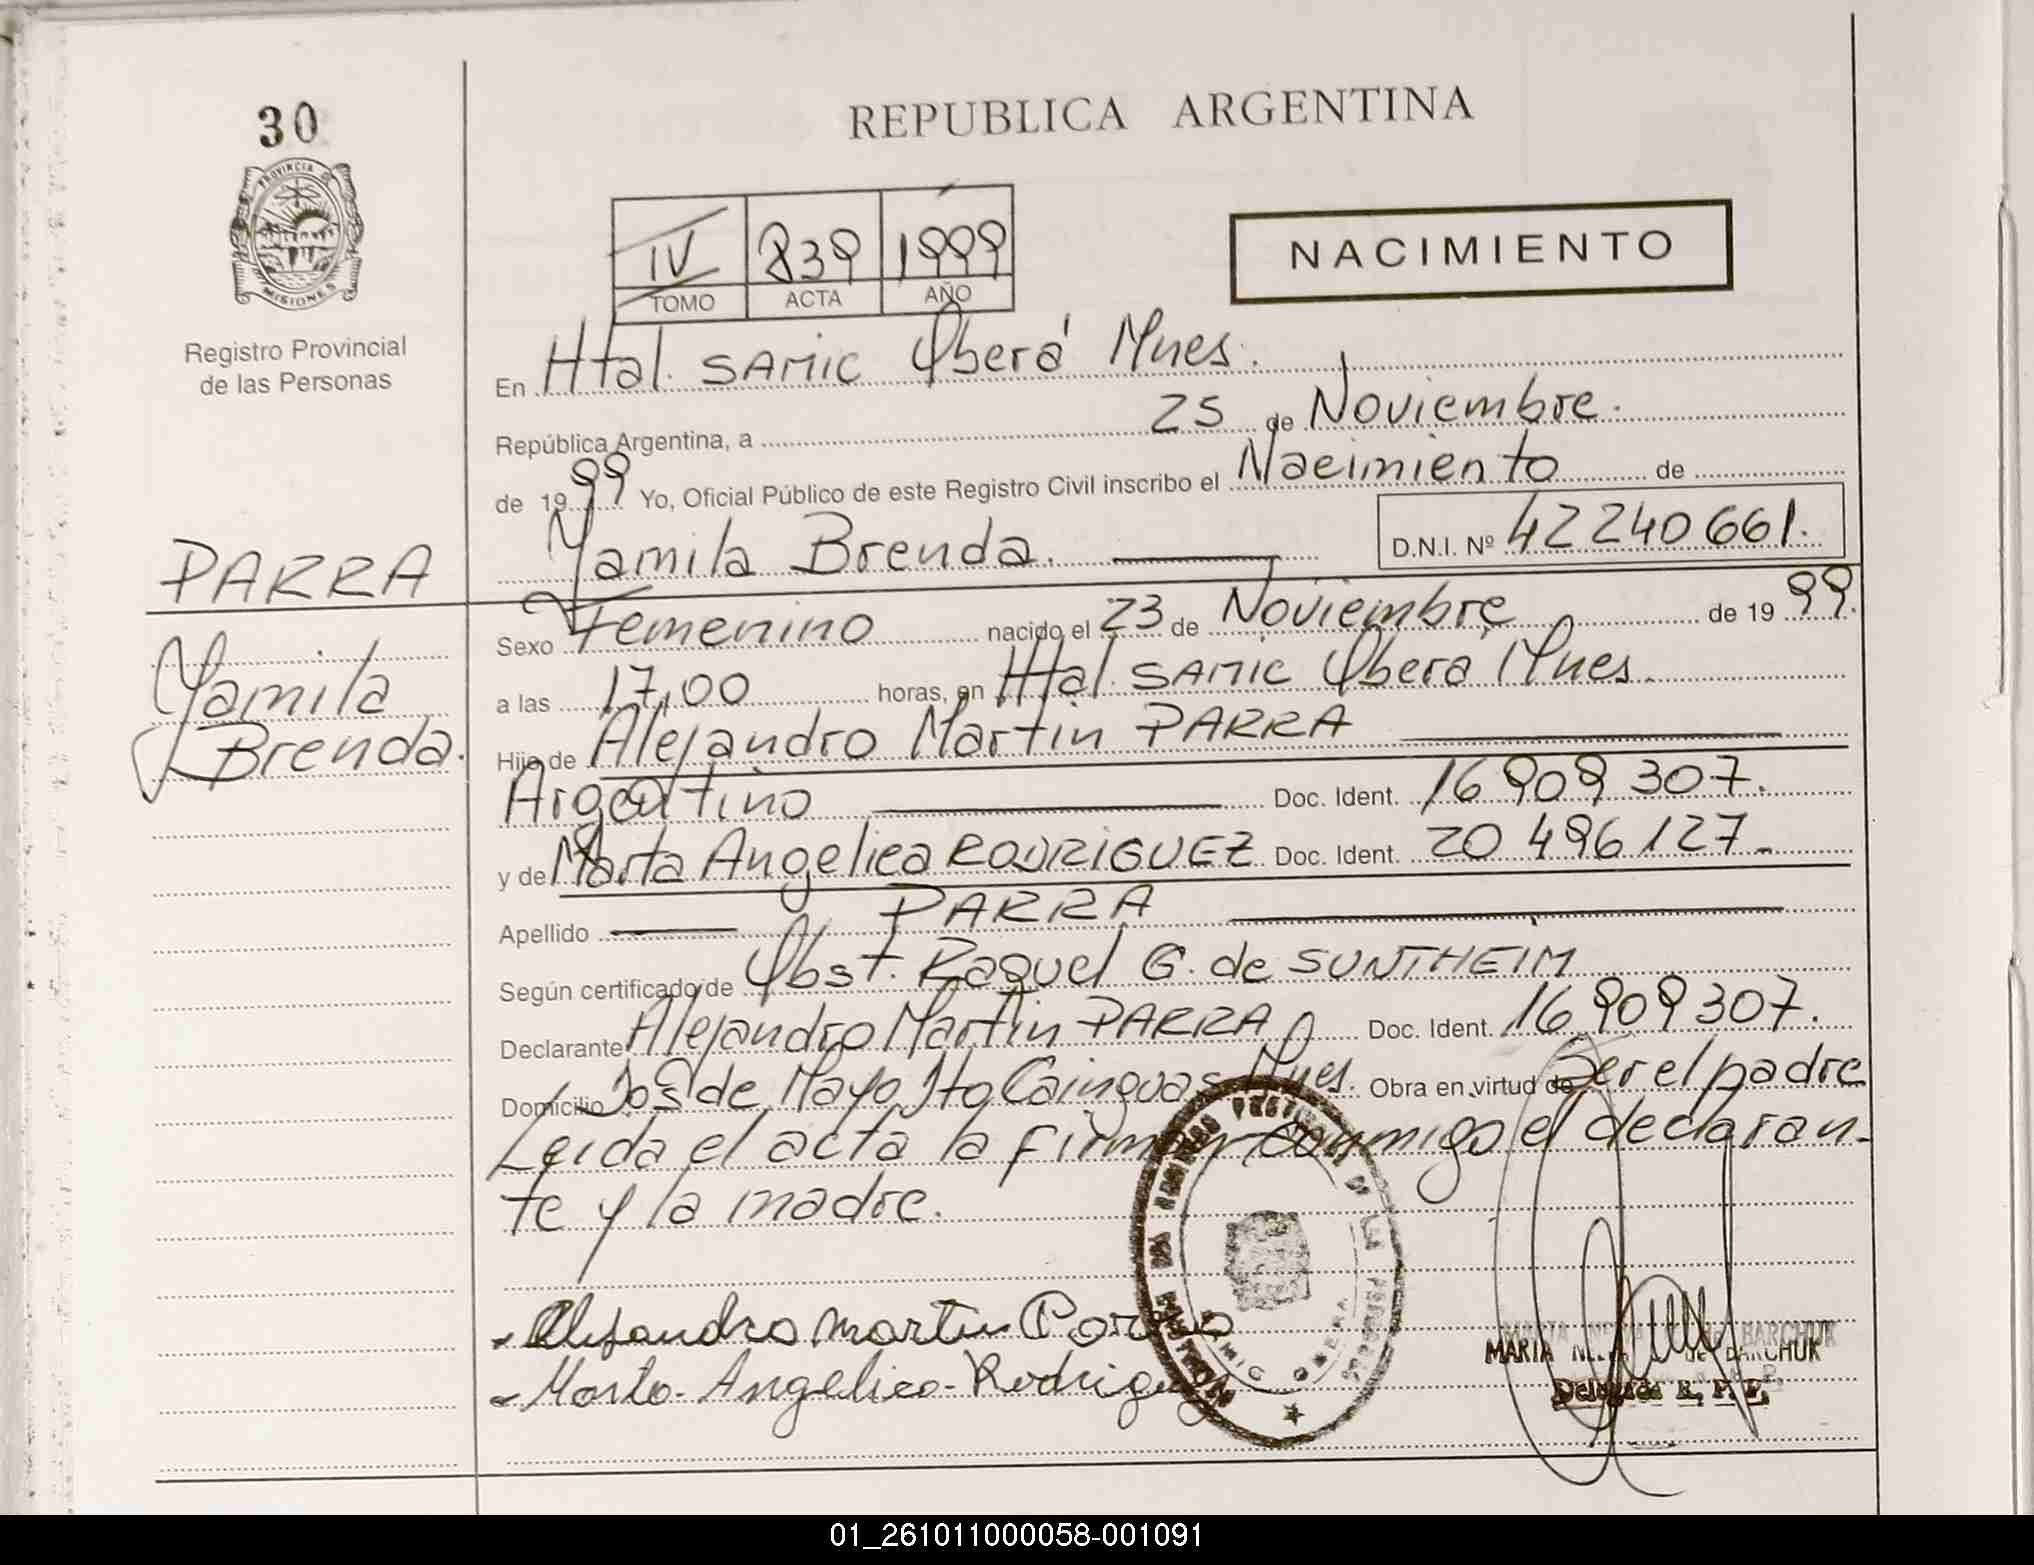 30
REPUBLICA ARGENTINA
PROVINCIA DE
MISIONES
Registro Provincial
de las Personas
IV 839 1999
TOMO ACTA AÑO
NACIMIENTO
En Htal. SAMIC Oberá Mnes.
República Argentina, a 25 de Noviembre.
de 1999 Yo, Oficial Público de este Registro Civil inscribo el Nacimiento de
Yamila Brenda. D.N.I. Nº 42240661.
PARRA
Yamila
Brenda.
Sexo Femenino nacido el 23 de Noviembre de 1999.
a las 17,00 horas, en Htal. SAMIC Oberá Mnes.
Hijo de Alejandro Martin PARRA
Argentino Doc. Ident. 16909307.
y de Marta Angelica RODRIGUEZ Doc. Ident. 20496127.
Apellido PARRA
Según certificado de Obst. Raquel G. de SUNTHEIM
Declarante Alejandro Martin PARRA Doc. Ident. 16909307.
Domicilio de Mayo Cainguas Mnes. Obra en virtud de Ser el padre
Leida el acta la firman conmigo el declaran-
te y la madre.
Alejandro Martin Parra
Marta Angelica Rodriguez
MARIA DE BARCHUK
Delegada R. P. P.
01_261011000058-001091